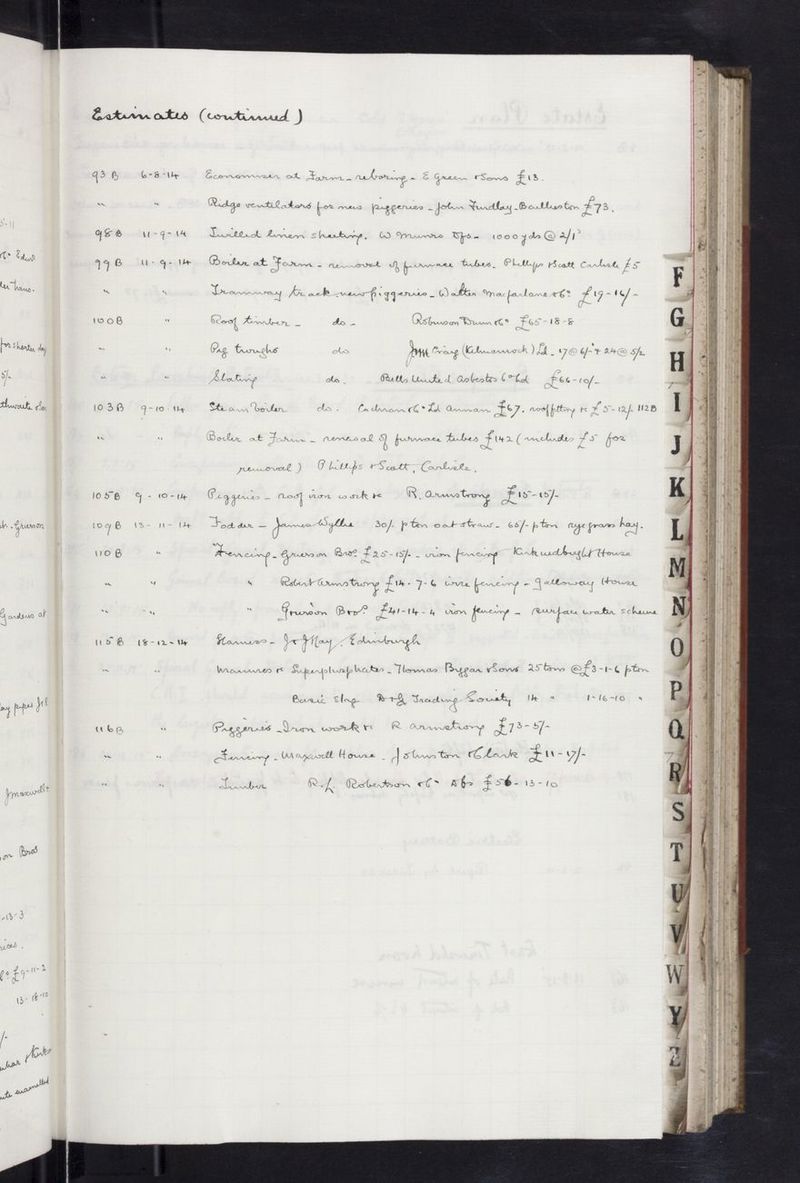 Estimates (continued)
93 B 6-8-14 Economiser at Farm - reboring - E Green & Sons £13.
" " Ridge ventilators for new piggeries - John Findlay - Baillieston £73.
98 B 11-9-14 Twilled linen sheeting. W Munro 1000 yds @ 2/1
99 B 11-9-14 Boiler at Farm - removal of furnace tubes. Phillips & Scott Carlisle £5
" " Tramway track new piggeries - Walter Macfarlane & Co £19-16/-
100 B " Roof timber - do - Robinson Dunn & Co £65-18-8
" " Pig troughs do Craig (Kilmarnock) Ld. 17 @ 6/- & 24 @ 5/2
" " Slating do. Bells United Asbestos Co Ld £66-10/-
103 B 9-10-14 Steam boiler do. Cochran & Co Ld Annan £67. roof fitting &c £5-12/- 112 B
" " Boiler at Farm - renewal of furnace tubes £142 (includes £5 for
removal) Phillips & Scott, Carlisle.
105 B 9-10-14 Piggeries - roof iron work &c R. Armstrong £15-15/-
109 B 13-11-14 Fodder - James Wyllie 30/- p ton oat straw - 65/- p ton rye grass hay.
110 B " Fencing - Grierson Bros. £25-15/- - iron fencing Kirkcudbright House
" " " Robert Armstrong £14-7-6 wire fencing - Galloway House
" " " Grierson Bros. £41-14-4 iron fencing - surface water scheme
115 B 18-12-14 Harness - Hay, Edinburgh
" " Manures &c Superphosphates - Thomas Biggar & Sons 25 tons @ £3-1-6 p ton
Basic Slag Trading Society 14 " 1-16-10 "
116 B " Piggeries - Iron work &c R Armstrong £73-5/-
" " Fencing - Maxwell House - Johnston & Clark £11-17/-
" " Timber R. Robertson & Co £56-13-10
F
G
H
I
J
K
L
M
N
O
P
Q
R
S
T
U
V
W
Y
Z